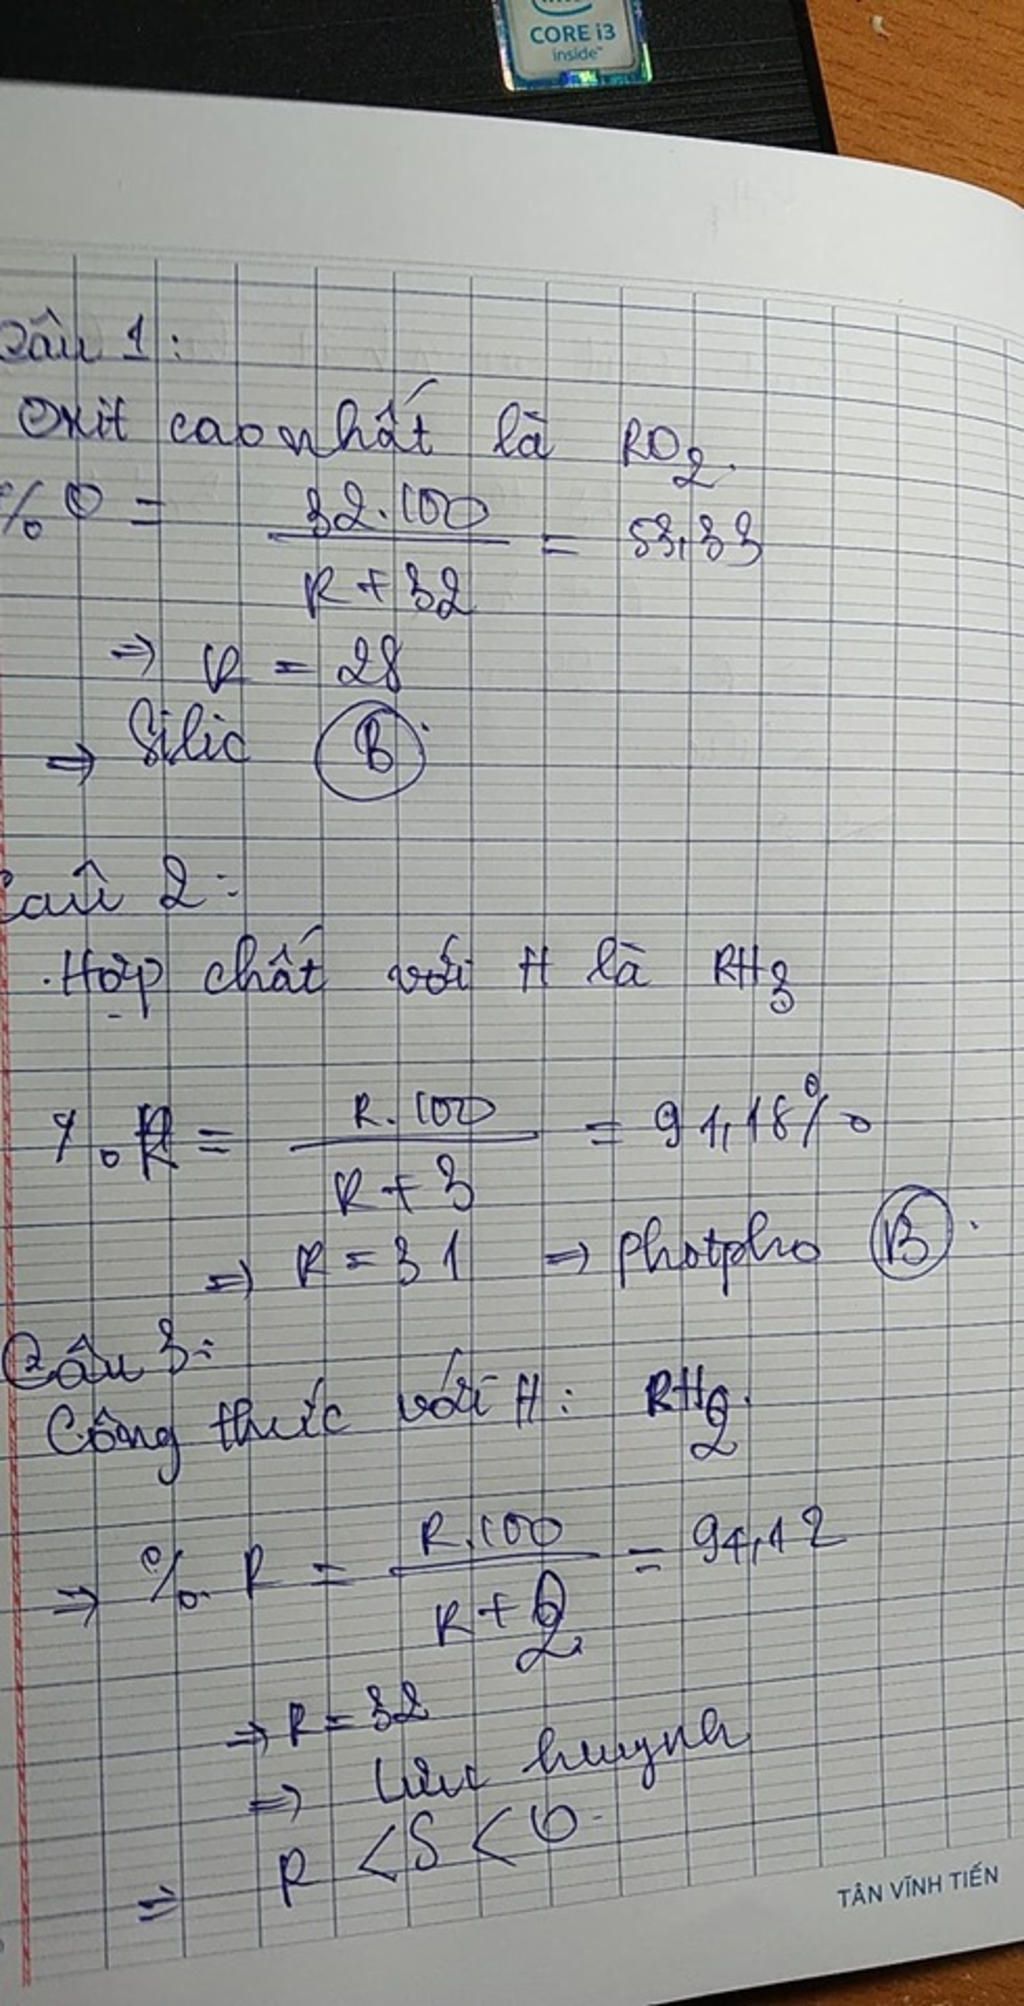 CORE i3
inside™
Câu 1:
Oxit cao nhất là RO2.
% O = 32.100 / R + 32 = 53,33
=> R = 28
=> Silic B.
Câu 2:
. Hợp chất với H là RH3
%. R = R.100 / R + 3 = 91,18%
=> R = 31 => photpho B.
Câu 3:
Công thức với H: RH2.
=> %. R = R.100 / R + 2 = 94,12
=> R = 32
=> Lưu huỳnh
=> P < S < O.
TÂN VĨNH TIẾN